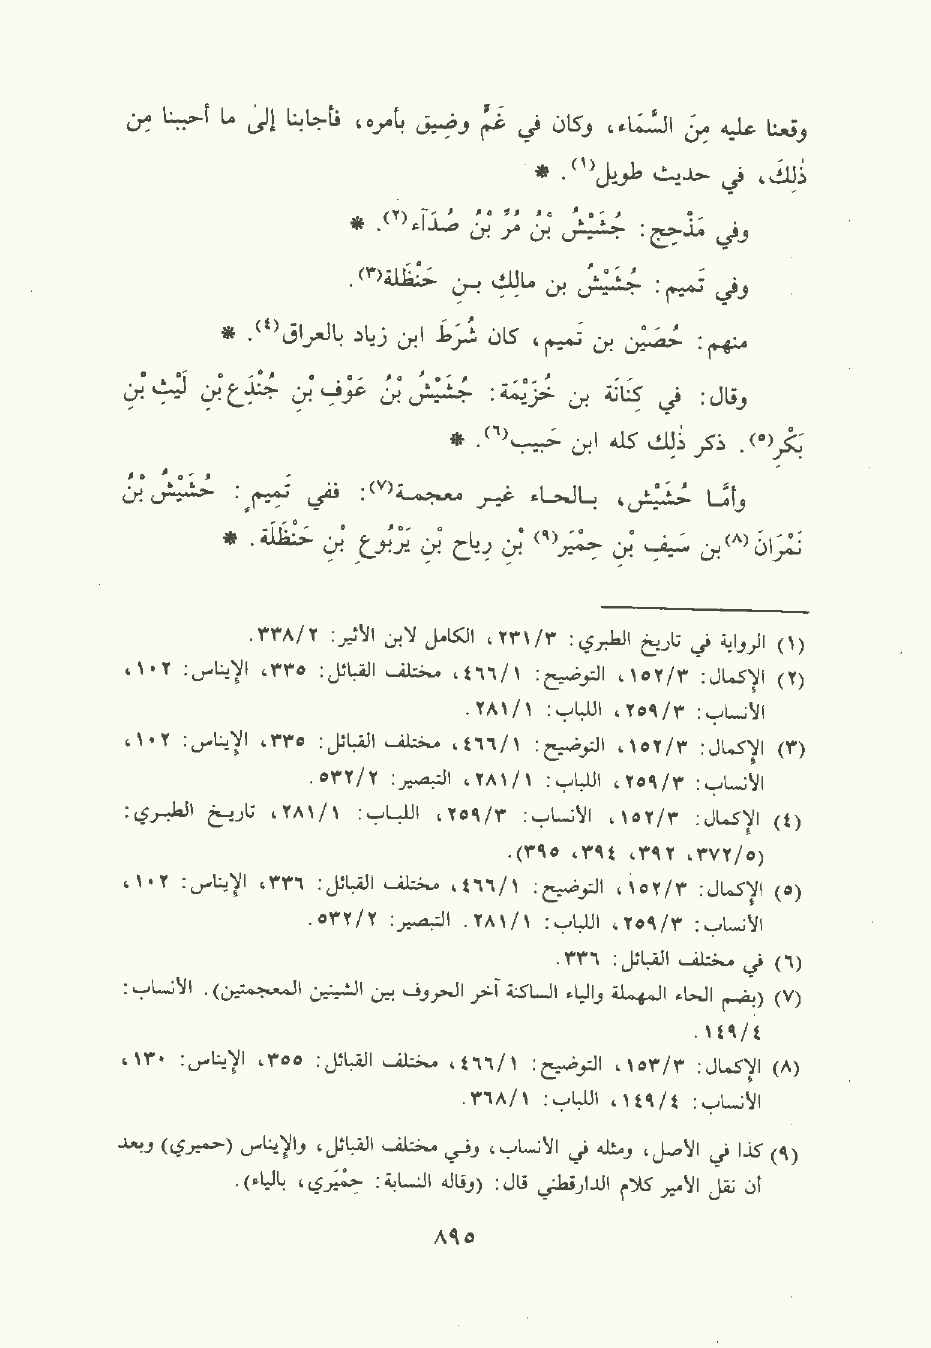 وقعنا عليه مِنَ السَّمَاء، وكان في غَمٍّ وضِيق بأمره، فأجابنا إلىٰ ما أحببنا مِن
ذٰلِكَ، في حديث طويل(١). *
وفي مَذْحِج: جُشَيْشُ بْنُ مُرِّ بْنُ صُدَآء(٢). *
وفي تَميم: جُشَيْشُ بن مالِك بـن حَنْظَلة(٣).
منهم: حُصَيْن بن تَميم، كان شُرَطَ ابن زياد بالعراق(٤). *
وقال: في كِنَانَة بن خُزَيْمَة: جُشَيْشُ بْنُ عَوْفِ بْنِ جُنْدَعِ بْنِ لَيْثِ بْنِ
بَكْرِ(٥). ذكر ذٰلك كله ابن حَبيب(٦). *
وأمَّـا حُشَيْش، بـالحـاء غيـر معجمـة(٧): ففي تَمِيمٍ: حُشَيْشُ بْنُ
نَمْرَانَ(٨) بن سَيفِ بْنِ حِمْيَرِ(٩) بْنِ رِياحِ بْنِ يَرْبُوعِ بْنِ حَنْظَلَة. *
(١) الرواية في تاريخ الطبري: ٢٣١/٣، الكامل لابن الأثير: ٣٣٨/٢.
(٢) الإكمال: ١٥٢/٣، التوضيح: ٤٦٦/١، مختلف القبائل: ٣٣٥، الإيناس: ١٠٢،
الأنساب: ٢٥٩/٣، اللباب: ٢٨١/١.
(٣) الإكمال: ١٥٢/٣، التوضيح: ٤٦٦/١، مختلف القبائل: ٣٣٥، الإيناس: ١٠٢،
الأنساب: ٢٥٩/٣، اللباب: ٢٨١/١، التبصير: ٥٣٢/٢.
(٤) الإكمال: ١٥٢/٣، الأنساب: ٢٥٩/٣، اللباب: ٢٨١/١، تاريخ الطبري:
(٣٧٢/٥، ٣٩٢، ٣٩٤، ٣٩٥).
(٥) الإكمال: ١٥٢/٣، التوضيح: ٤٦٦/١، مختلف القبائل: ٣٣٦، الإيناس: ١٠٢،
الأنساب: ٢٥٩/٣، اللباب: ٢٨١/١. التبصير: ٥٣٢/٢.
(٦) في مختلف القبائل: ٣٣٦.
(٧) (بضم الحاء المهملة والياء الساكنة آخر الحروف بين الشينين المعجمتين). الأنساب:
١٤٩/٤.
(٨) الإكمال: ١٥٣/٣، التوضيح: ٤٦٦/١، مختلف القبائل: ٣٥٥، الإيناس: ١٣٠،
الأنساب: ١٤٩/٤، اللباب: ٣٦٨/١.
(٩) كذا في الأصل، ومثله في الأنساب، وفي مختلف القبائل، والإيناس (حميري) وبعد
أن نقل الأمير كلام الدارقطني قال: (وقاله النسابة: حِمْيَري، بالياء).
٨٩٥